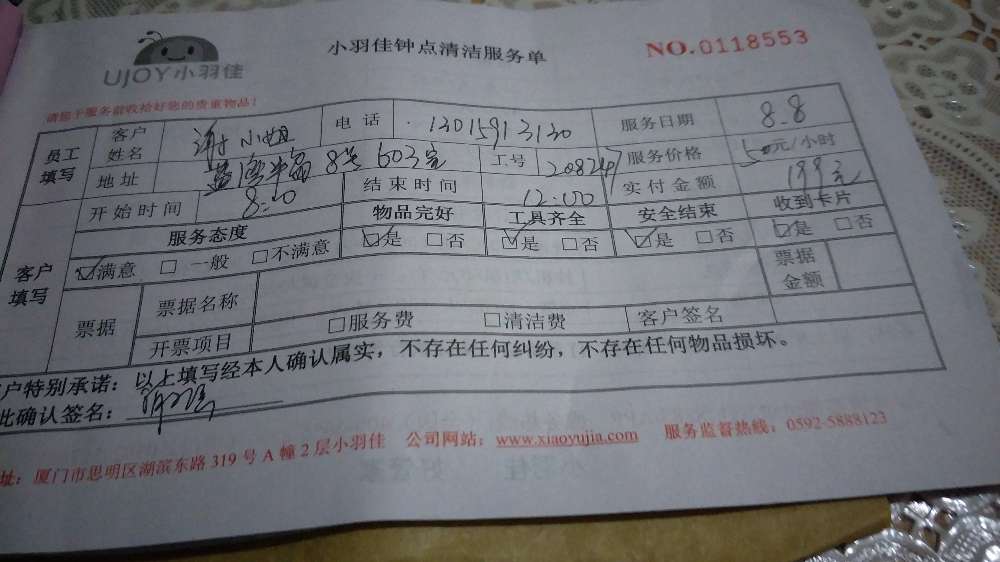 UJOY小羽佳
小羽佳钟点清洁服务单
NO.0118553
请您于服务前收拾好您的贵重物品！
员工填写 客户姓名 谢小姐 电话 13015913130 服务日期 8.8
地址 8 603室 工号 208247 服务价格 50元/小时
开始时间 8:00 结束时间 12:00 实付金额 199元
客户填写 服务态度 物品完好 工具齐全 安全结束 收到卡片
☑满意 □一般 □不满意 ☑是 □否 ☑是 □否 ☑是 □否 ☑是 □否
票据 票据名称 票据金额
开票项目 □服务费 □清洁费 客户签名
客户特别承诺：以上填写经本人确认属实，不存在任何纠纷，不存在任何物品损坏。
此确认签名：
址：厦门市思明区湖滨东路319号A幢2层小羽佳 公司网站：www.xiaoyujia.com 服务监督热线：0592-5888123